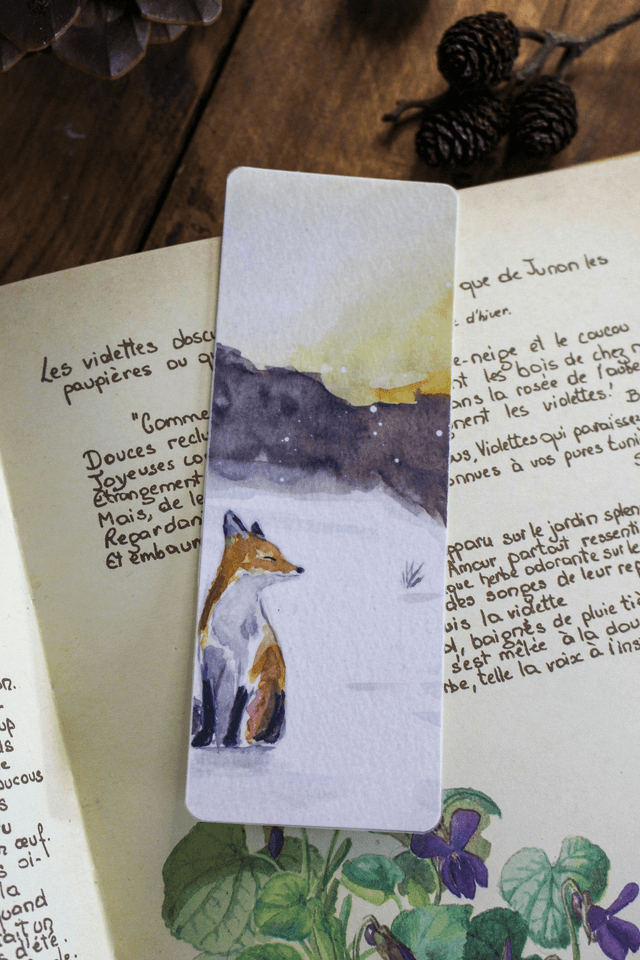 Les violettes
paupières ou
"Comme
Douces
Joyeuses
Étrangement
Mais, de
Regardan
Et embaum
que de Junon les
d'hiver.
e-neige et le coucou
nt les bois de chez
ans la rosée de l'aube
nent les violettes!
us, Violettes qui paraisse
onnues à vos pures tuni
pparu sur le jardin splen
Amour partout ressenti
que herbe odorante sur le
des songes de leur rep
uis la violette
ol, baignés de pluie tiè
s'est mêlée à la dou
rbe, telle la voix à l'ins
on.
up
ds
e
oucous
s
u
n œuf.
s oi-
la
quand
t un
d'été.